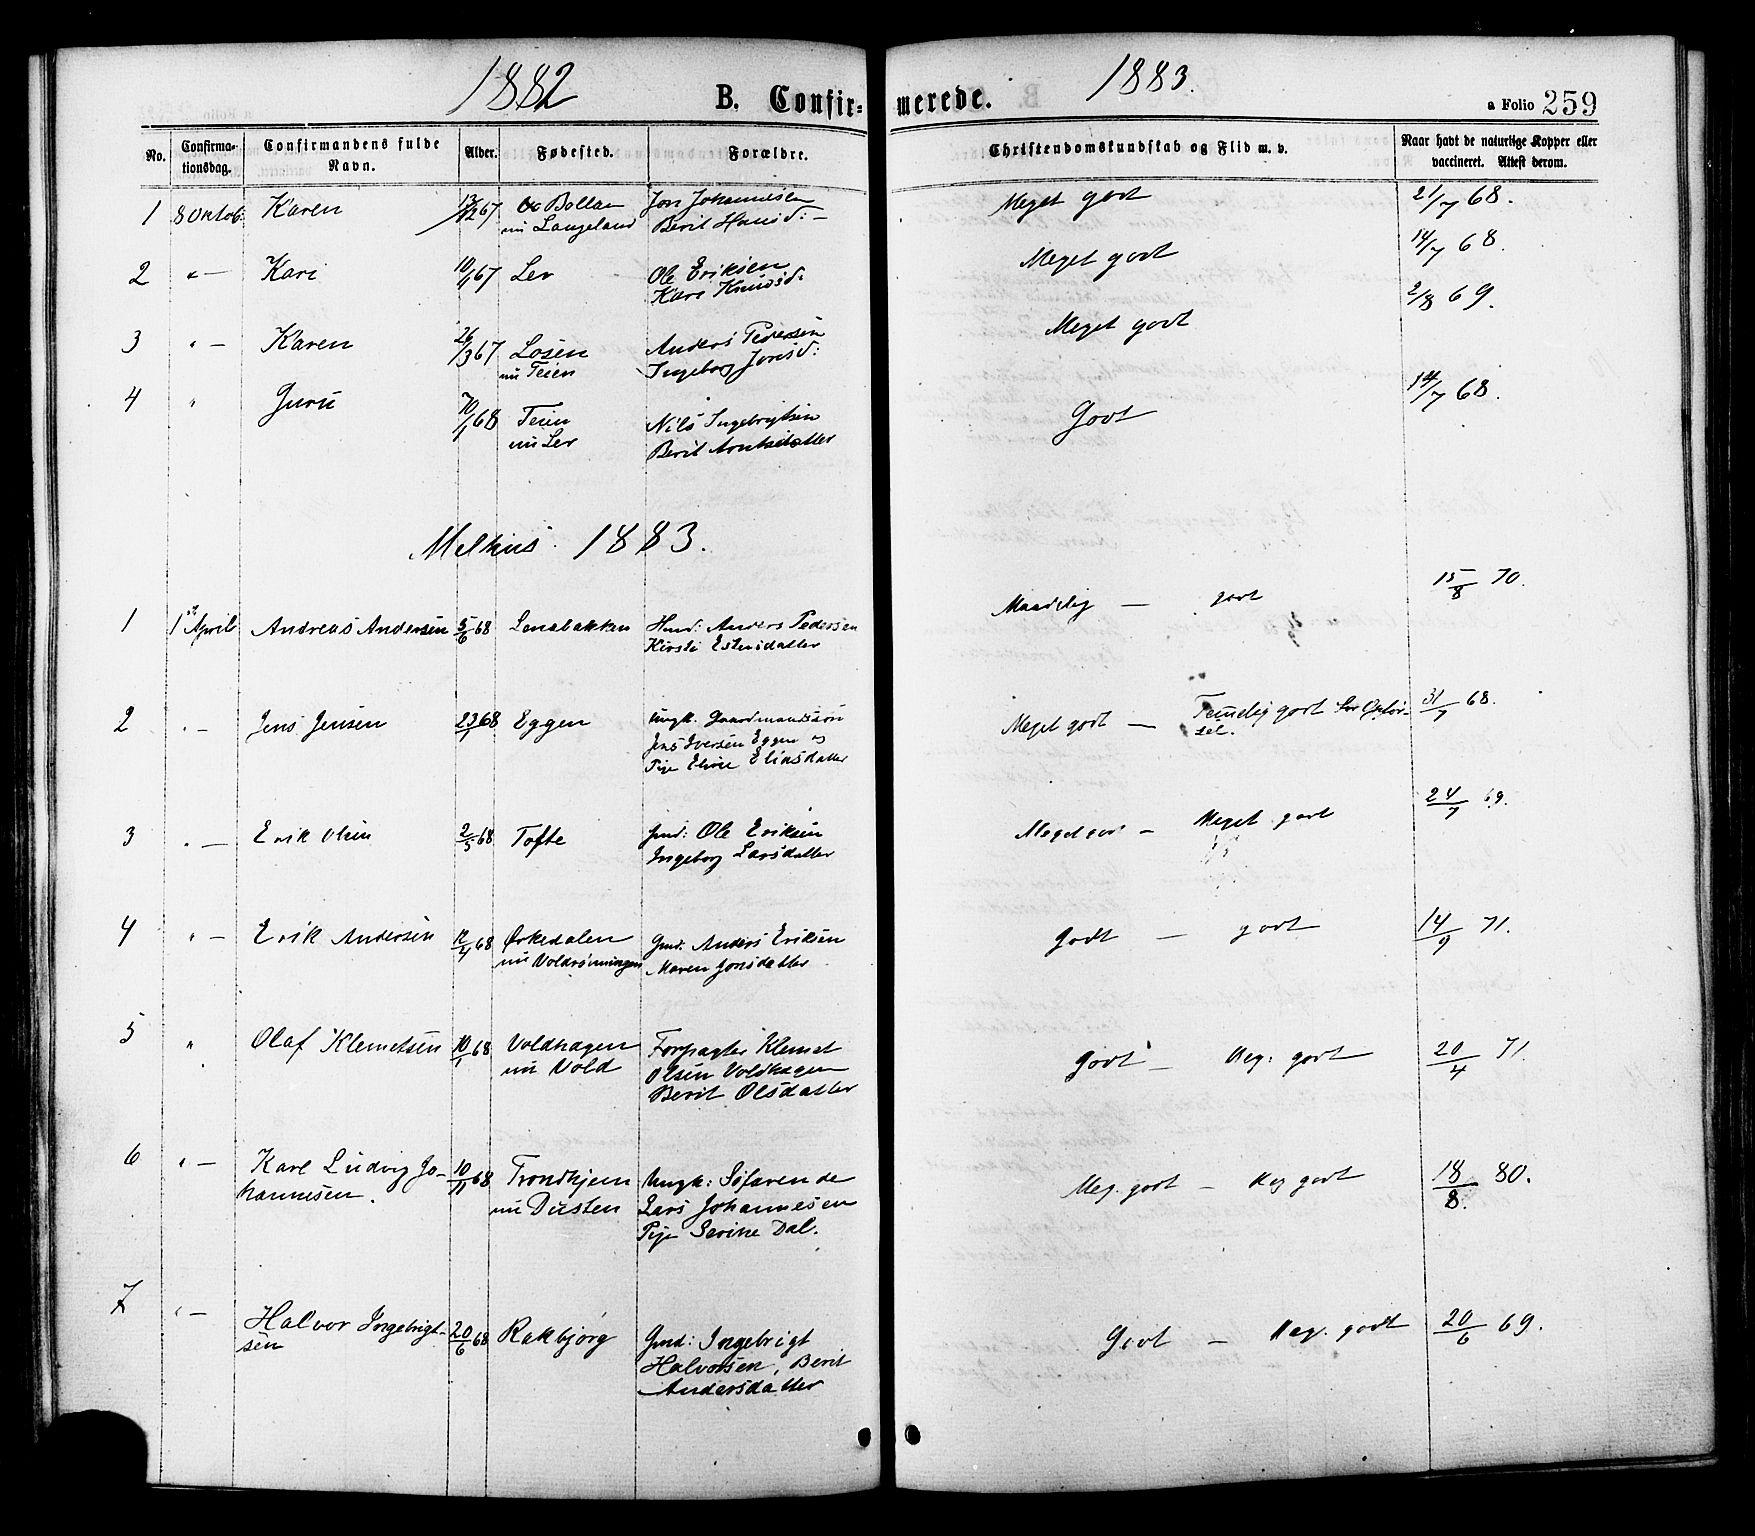 1882 B. Confir- merede. 1883. a Folio 259
No. Confirma-tionsdag. Confirmandens fulde Navn. Alder. Fødested. Forældre. Christendomskundskab og Flid m. v. Naar havt de naturlige Kopper eller vaccineret. Attest derom.
1 8 Oktob: Karen 12/12 67 Bollan Jon Johannesen Meget godt 21/7 68.
nu Langeland Berit Hansd: –
2 " — Kari 10/1 67 Lev Ole Eriksen Meget godt 14/7 68.
Kari Knudsd:
3 " — Karen 26/3 67 Losen Anders Pedersen Meget godt 2/8 69.
nu Teien Ingeborg Jonsd:
4 " Guru 10/1 68 Teien Nils Ingebrigtsen Godt 14/7 68.
nu Lev Berit Arntsdatter
Melhus. 1883.
1 1 April Andreas Andersen 5/6 68 Lenabakken Anders Pedersen Maadelig — godt 15/8 70.
Kirsti Estensdatter
2 " — Jens Jensen 23/1 68 Eggen Ungk. Gaardmandssøn Meget godt — Temmelig godt for Opfør- 31/7 68.
Jens Iversen Eggen og sel.
Pige Eliasdatter
3 " — Erik Olsen 2/5 68 Tofte Gmd: Ole Eriksen Meget godt — Meget godt 24/7 69.
Ingeborg Larsdatter
4 " — Erik Andersen 12/4 68 Ørkedalen Gmd. Anders Eriksen Godt — godt 14/9 71.
nu Voldrønningen Maren Jonsdatter
5 " Olaf Klemetsen 10/1 68 Voldhagen Forpagter Klemet Godt — Meg: godt 20/4 71.
nu Vold Olsen Voldhagen
Berit Olsdatter
6 " — Karl Ludvig Jo- 10/11 68 Trondhjem Ungk: Søfarende Meg. godt — Meg godt 18/8. 80.
hannesen. nu Lars Johannesen
Pige Serine Dal.
7 " — Halvor Ingebrigt- 20/6 68 Rakbjørg Gmd: Ingebrigt Godt — Meg. godt 20/6 69.
sen Halvorsen, Berit
Andersdatter